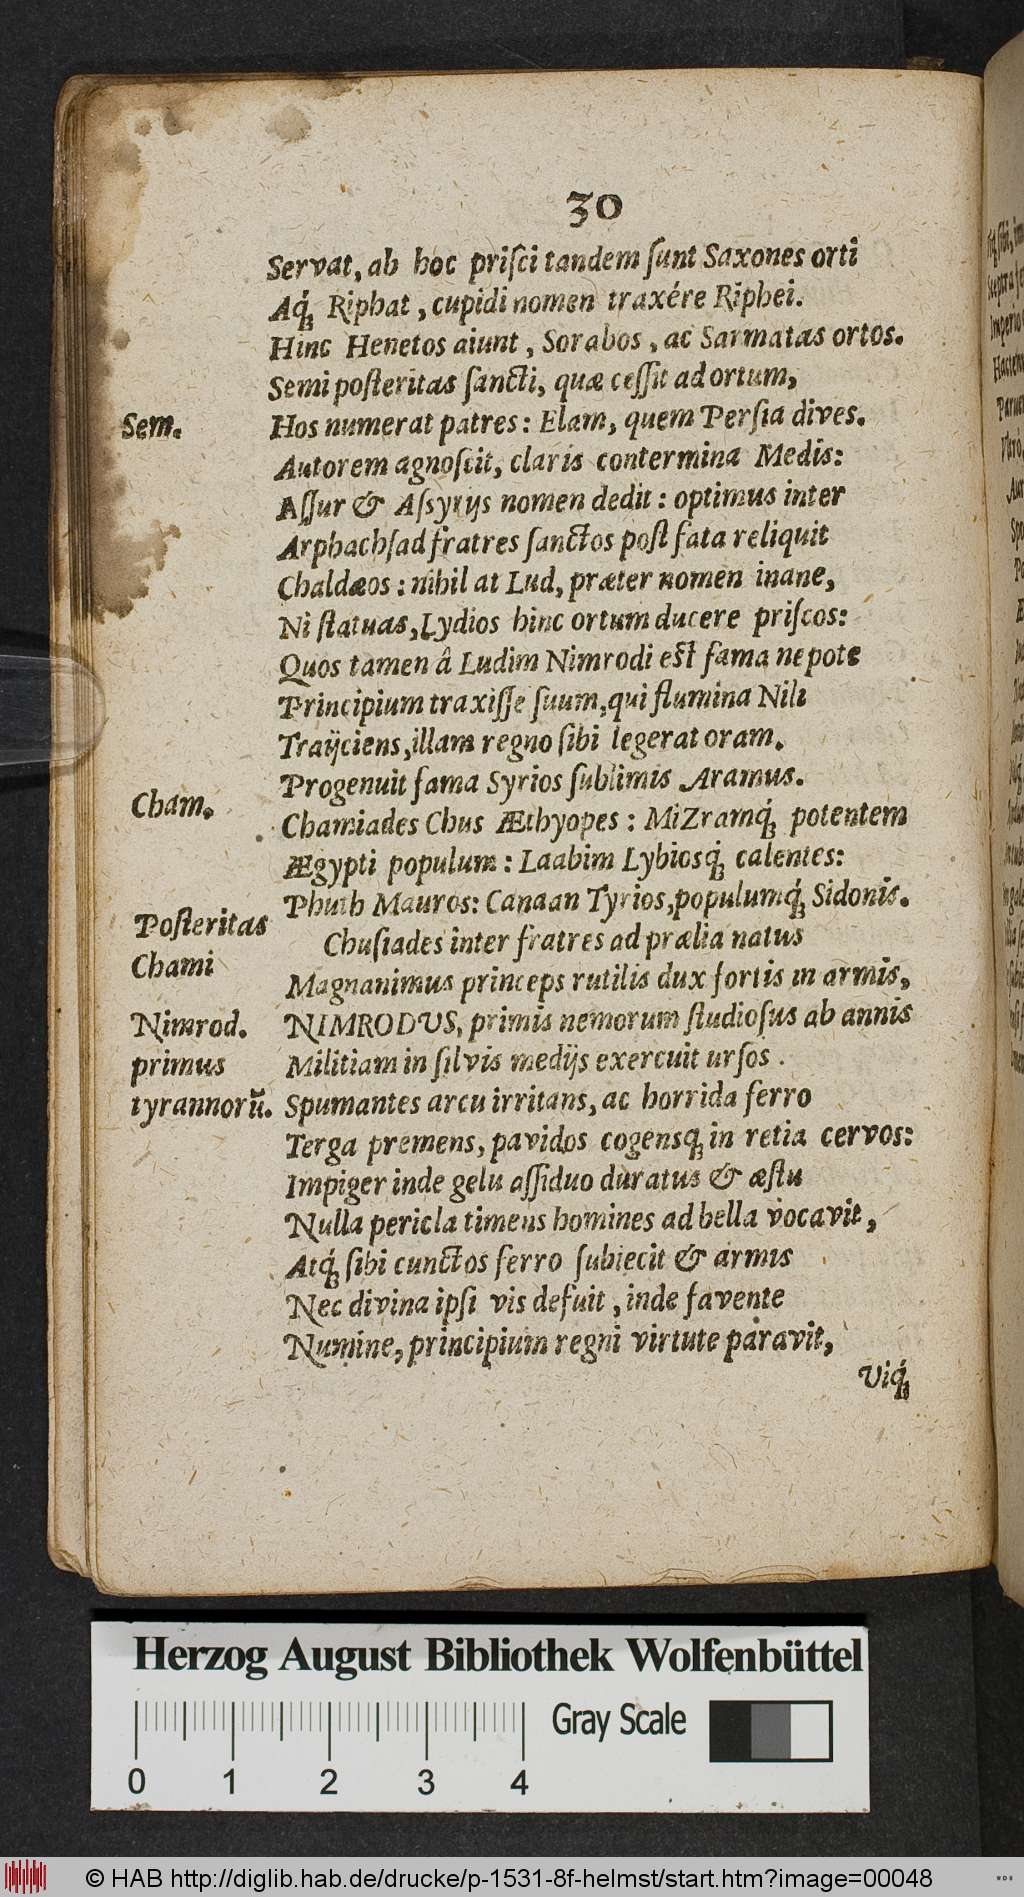 30
Servat, ab hoc priſci tandem ſunt Saxones orti
Aq́; Riphat, cupidi nomen traxére Riphei.
Hinc Henetos aiunt, Sorabos, ac Sarmatas ortos.
Semi poſteritas ſancti, quæ ceſſit ad ortum,
Sem.
Hos numerat patres: Elam, quem Perſia dives.
Autorem agnoſcit, claris contermina Medis:
Aſſur & Aſsyrijs nomen dedit: optimus inter
Arphachſad fratres ſanctos poſt fata reliquit
Chaldæos: nihil at Lud, præter nomen inane,
Ni ſtatuas, Lydios hinc ortum ducere priſcos:
Quos tamen â Ludim Nimrodi eſt fama nepote
Principium traxiſſe ſuum, qui flumina Nili
Traijciens, illam regno ſibi legerat oram.
Progenuit fama Syrios ſublimis Aramus.
Cham.
Chamiades Chus Æthyopes: MiZramq́; potentem
Ægypti populum: Laabim Lybiosq́; calentes:
Phuth Mauros: Canaan Tyrios, populumq́; Sidonis.
Poſteritas
Chami
Chuſiades inter fratres ad prælia natus
Magnanimus princeps rutilis dux fortis in armis,
Nimrod.
primus
tyrannorũ.
NIMRODVS, primis nemorum ſtudioſus ab annis
Militiam in ſilvis medijs exercuit urſos.
Spumantes arcu irritans, ac horrida ferro
Terga premens, pavidos cogensq; in retia cervos:
Impiger inde gelu aſſiduo duratus & æſtu
Nulla pericla timens homines ad bella vocavit,
Atq́; ſibi cunctos ferro ſubiecit & armis
Nec divina ipſi vis defuit, inde favente
Numine, principium regni virtute paravit,
Viq́;
Herzog August Bibliothek Wolfenbüttel
Gray Scale
0 1 2 3 4
© HAB http://diglib.hab.de/drucke/p-1531-8f-helmst/start.htm?image=00048